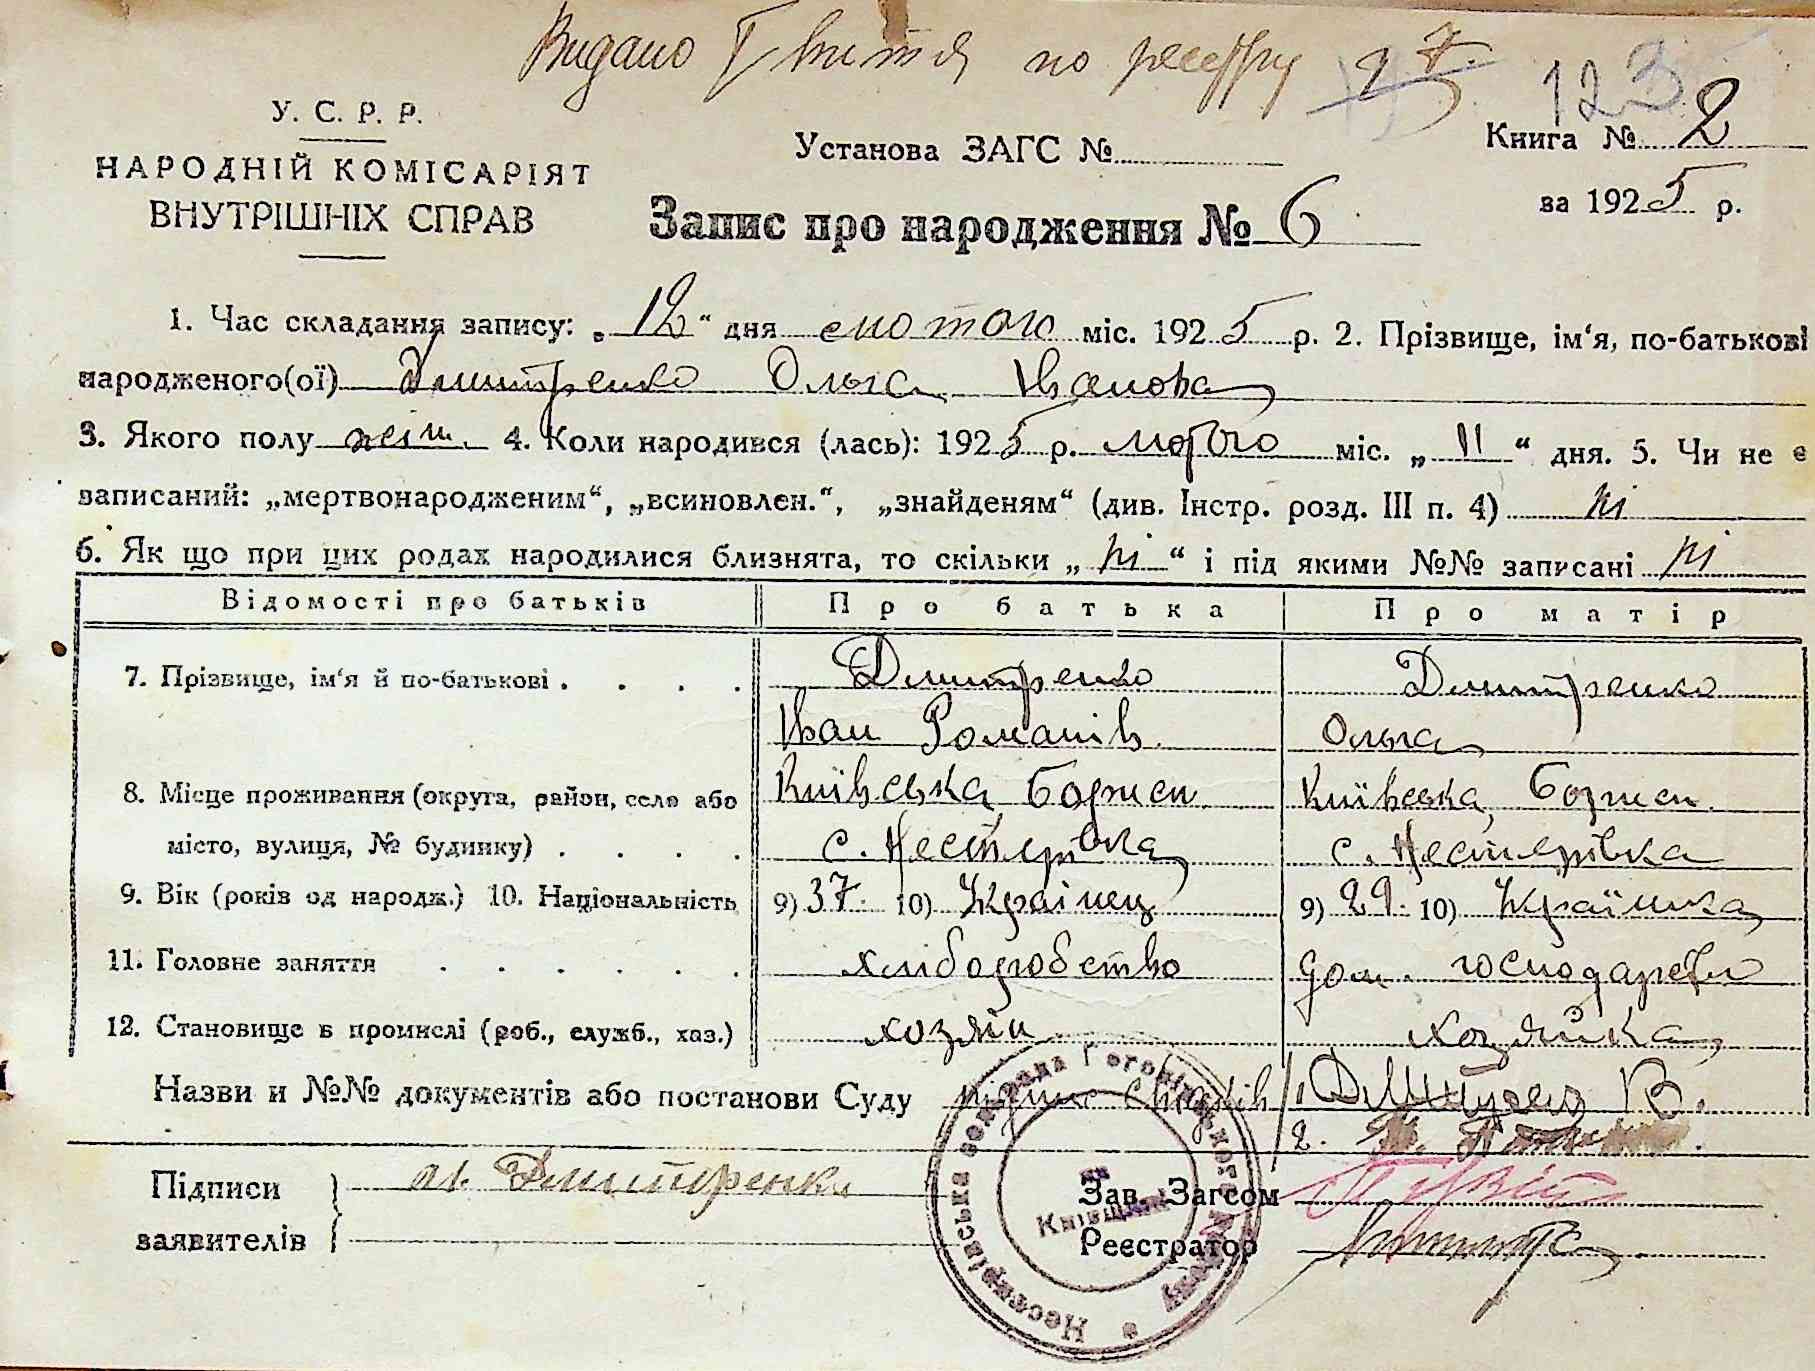 Видано Витяг по реєстру 27.
123
У. С. Р. Р.
НАРОДНІЙ КОМІСАРІЯТ
ВНУТРІШНІХ СПРАВ
Установа ЗАГС №
Книга № 2
за 1925 р.
Запис про народження № 6
1. Час складання запису: „12“ дня лютого міс. 1925 р. 2. Прізвище, ім‘я, по-батькові
народженого(ої) Дмитренко Ольга Іванова
3. Якого полу жін. 4. Коли народився (лась): 1925 р. лютого міс. „11“ дня. 5. Чи не є
записаний: „мертвонародженим“, „всиновлен.“, „знайденям“ (див. Інстр. розд. III п. 4) ні
6. Як що при цих родах народилися близнята, то скільки „ні“ і під якими №№ записані ні
Відомості про батьків Про батька Про матір
7. Прізвище, ім‘я й по-батькові . . . . Дмитренко Дмитренко
Іван Романів. Ольга
8. Місце проживання (округа, район, село або Київська Київська
місто, вулиця, № будинку) . . . . с. Нестерівка с. Нестерівка
9. Вік (років од народж.) 10. Національність 9) 37. 10) Українец 9) 29. 10) Українка
11. Головне заняття . . . . . . хліборобство дом. господарство
12. Становище в промислі (роб., служб., хаз.) хозяін хозяйка
Назви и №№ документів або постанови Суду 1.
2.
Підписи Дмитренко Зав. Загсом
заявителів Реєстратор
Нестерівська сільрада
на
Київщині